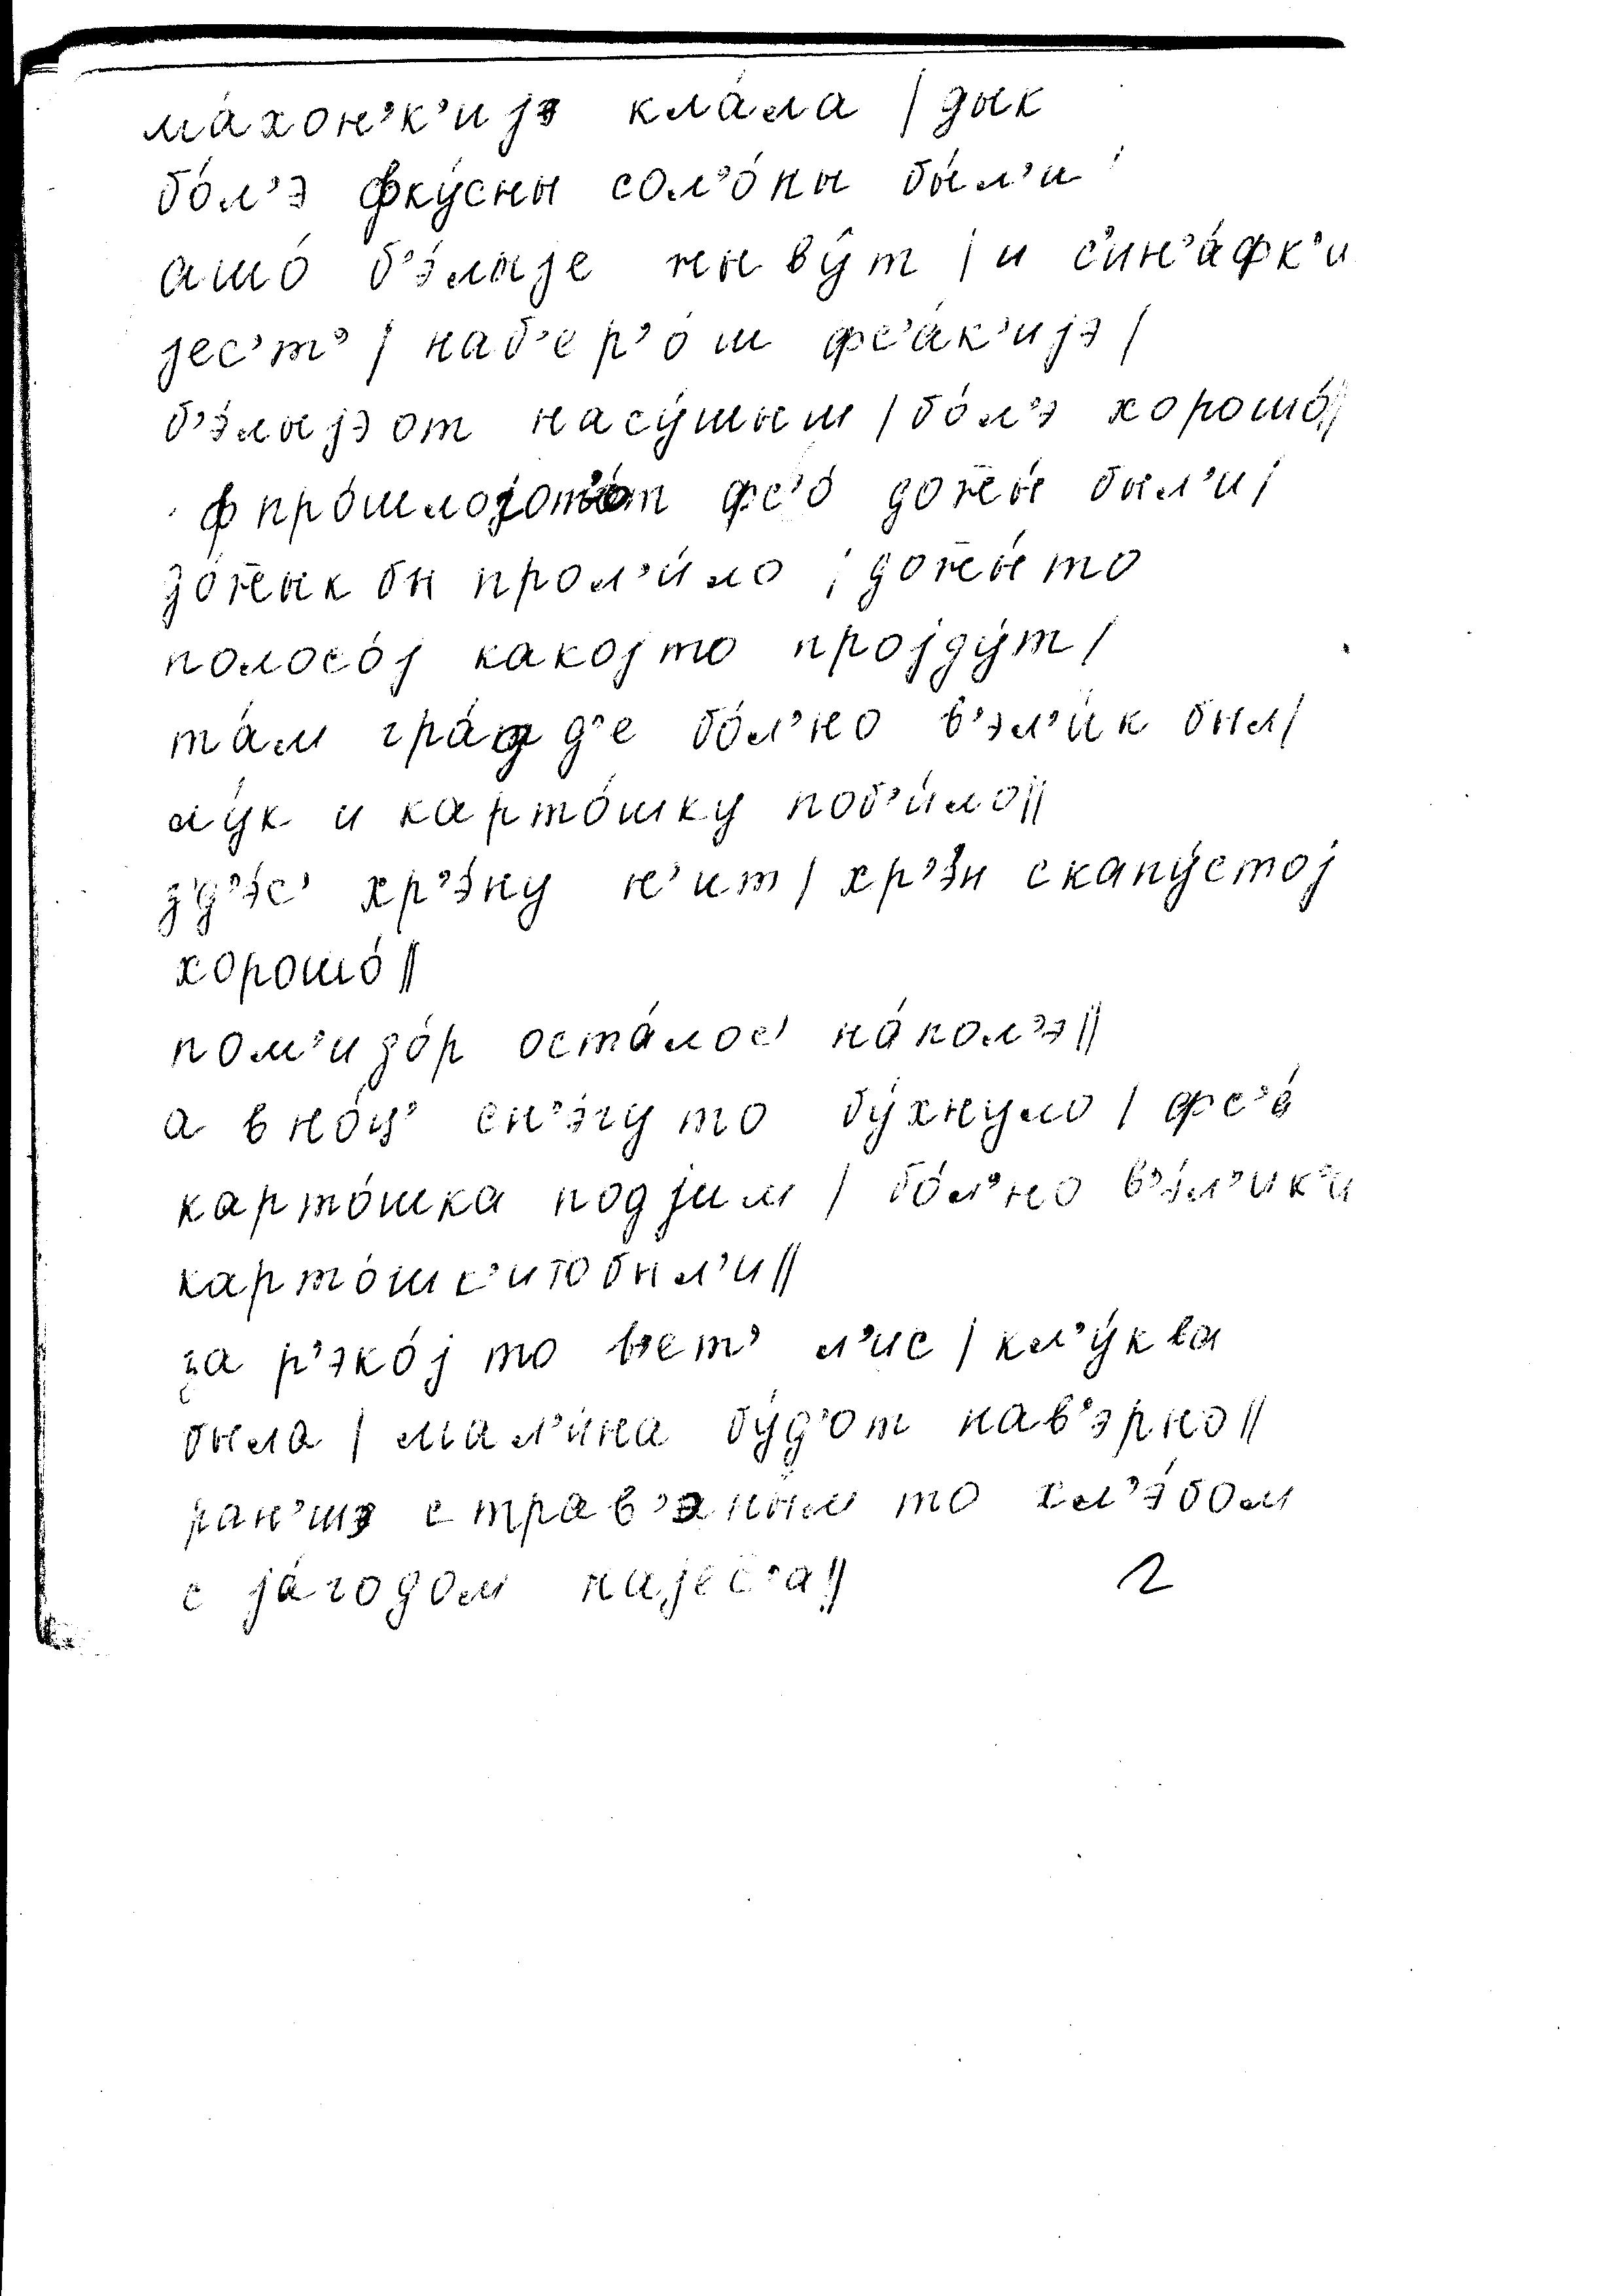 ма́хон’к’ијэ кла́ла | дык
бо́л’э фку́сны сол’о́ны бы́л’и |
ашо́ б’э́лыје жыву́т | и с’ин’а́фк’и
јес’т’ | наб’ер’о́ш фс’а́к’ијэ |
б’э́лыјэ от насу́шыш | бо́л’э хорошо́ ||
ф про́шлој от фс’о́ дожжы́ бы́л’и |
до́жжык бы прол’и́ло | дожжы́ то
полосо́ј какој то пројду́т |
та́м гра́д д’е бо́л’но в’эл’и́к был |
лу́к и карто́шку поб’и́ло ||
з’д’э́с’ хр’э́ну н’ит | хр’э́н с капу́стој
хорошо́ ||
пом’идо́р оста́лос’ на́пол’э ||
а в но́ц’ сн’э́гу то бу́хнуло | фс’а́
карто́шка подјим | бо́л’но в’э́л’ик’и
карто́шк’и то был’и ||
за р’эко́ј то јест’ л’ис | кл’у́ква
была | мал’и́на бу́д’от нав’эрно ||
ран’шэ с трав’аны́м то хл’э́бом
с ја́годом најес’с’а ||
2